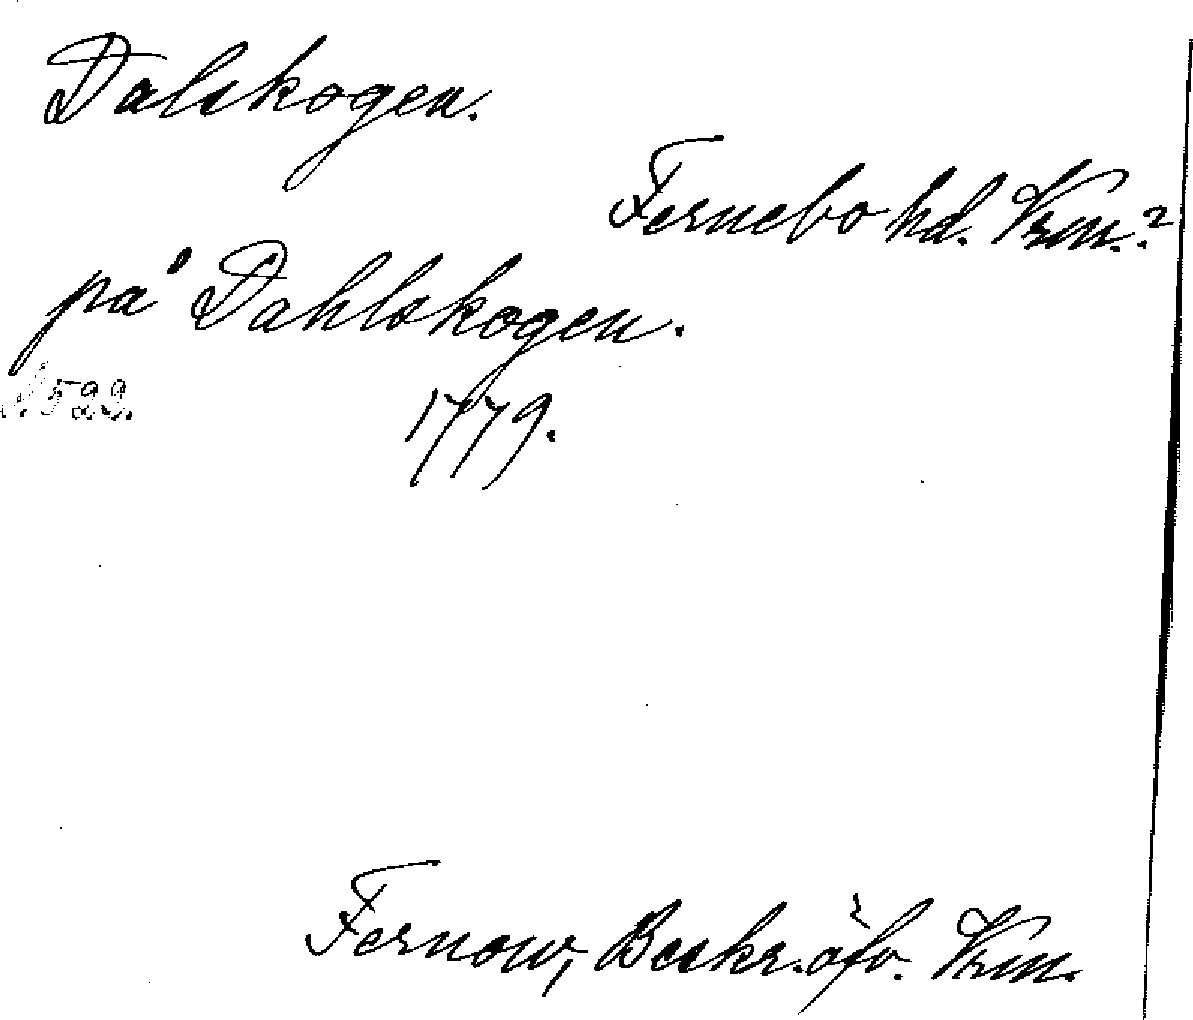 Dalskogen.
Fernebo hd. Vrm.?
på Dahlskogen.
s. 522.
1779.
Fernow, Beskr. öfv. Vrm.